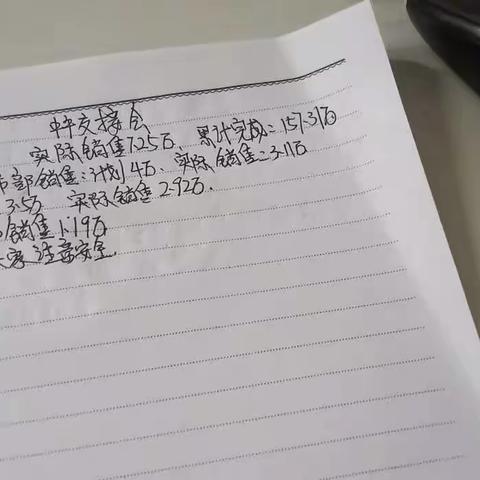 中午交接会
实际销售7.25万、累计完成:157.31万
部销售:计划4万、实际销售:3.11万
3.5万 实际销售2.92万.
销售1.19万
注意安全.